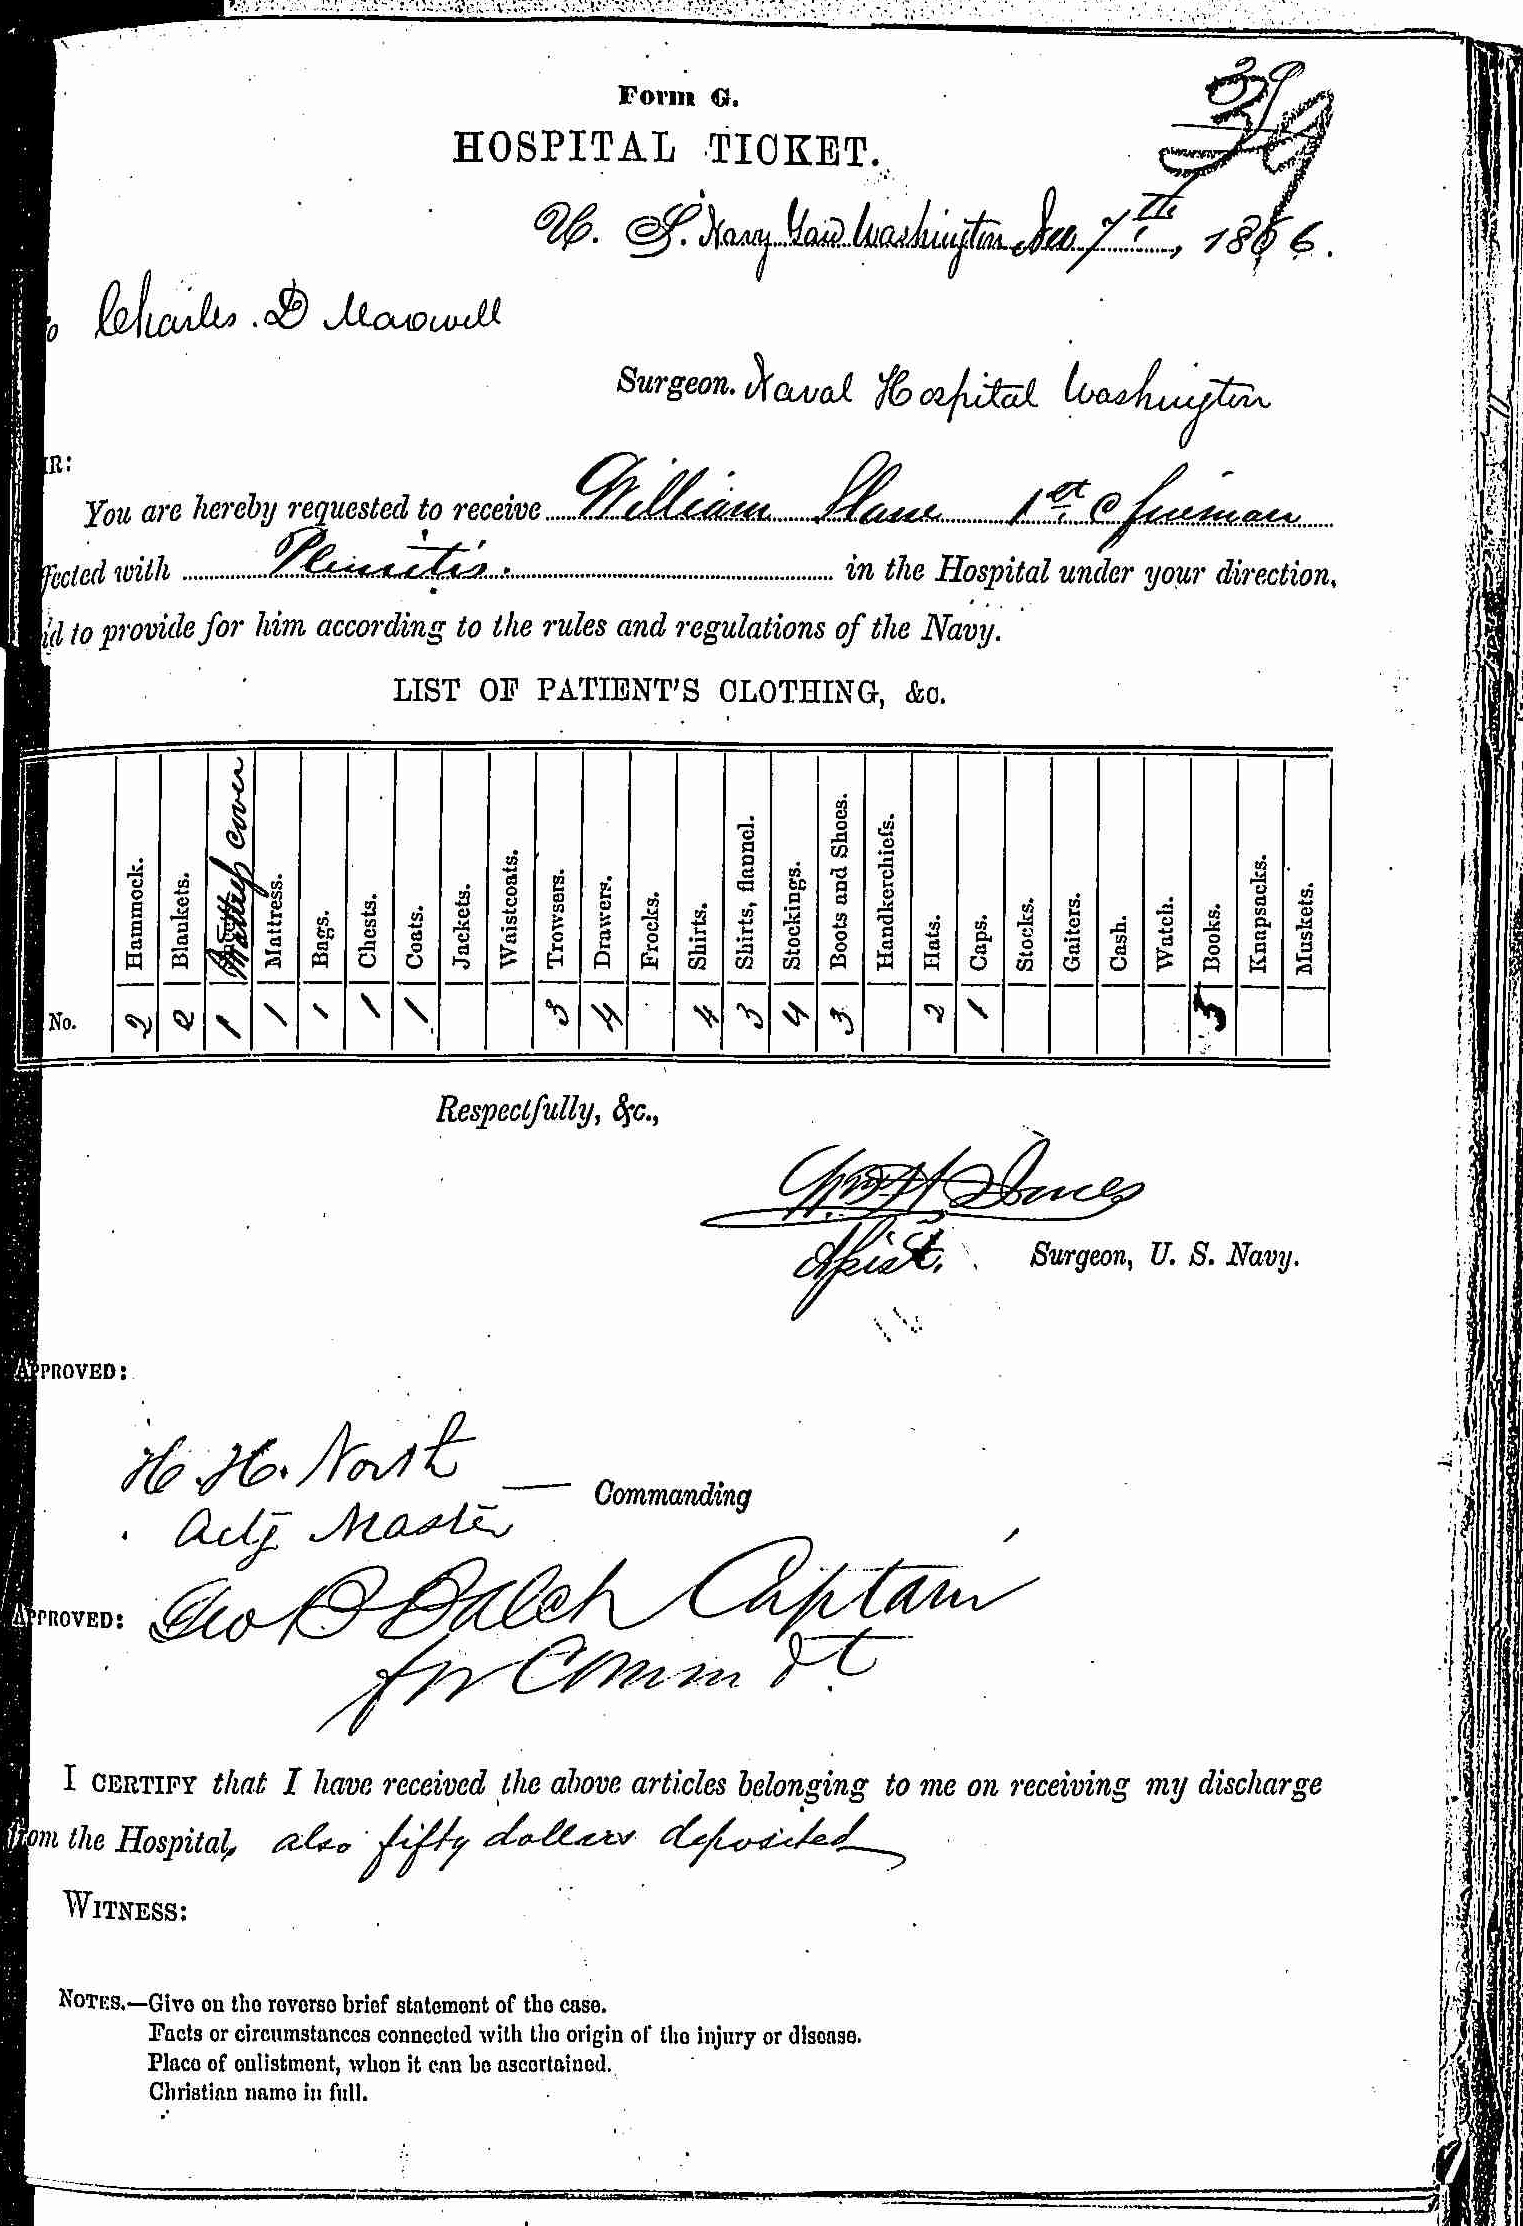 Form G.
39
HOSPITAL TICKET.
U. S. Navy Yard Washington Dec 7th, 1866.
Charles. D Maxwell
Surgeon. Naval Hospital Washington
IR:
You are hereby requested to receive William Slane 1st C fireman
fected with Pleuritis. in the Hospital under your direction,
d to provide for him according to the rules and regulations of the Navy.
LIST OF PATIENT'S CLOTHING, &c.
Hammock. Blankets. Mattress cover Mattress. Bags. Chests. Coats. Jackets. Waistcoats. Trowsers. Drawers. Frocks. Shirts. Shirts, flannel. Stockings. Boots and Shoes. Handkerchiefs. Hats. Caps. Stocks. Gaiters. Cash. Watch. Books. Knapsacks. Muskets.
No. 2 2 1 1 1 1 1 3 4 4 3 4 3 2 1 5
Respectfully, &c.,
Wm H Jones
Assist. Surgeon, U. S. Navy.
APPROVED:
H. H. North
— Commanding
Actg Master
APPROVED: Geo B Balch Captain
for Commdt
I CERTIFY that I have received the above articles belonging to me on receiving my discharge
from the Hospital, also fifty dollars deposited
WITNESS:
NOTES.—Give on the reverse brief statement of the case.
Facts or circumstances connected with the origin of the injury or disease.
Place of enlistment, when it can be ascertained.
Christian name in full.